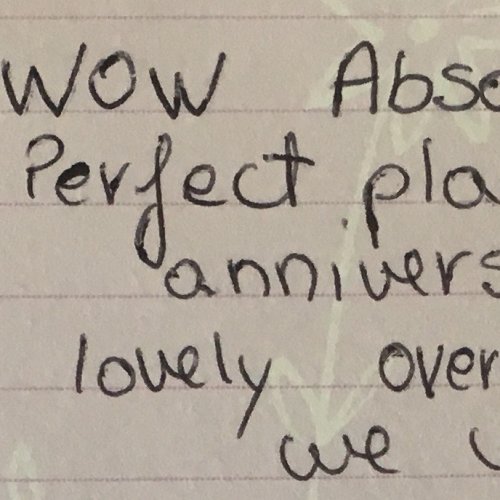 WOW Abso
Perfect pla
annivers
lovely over
we